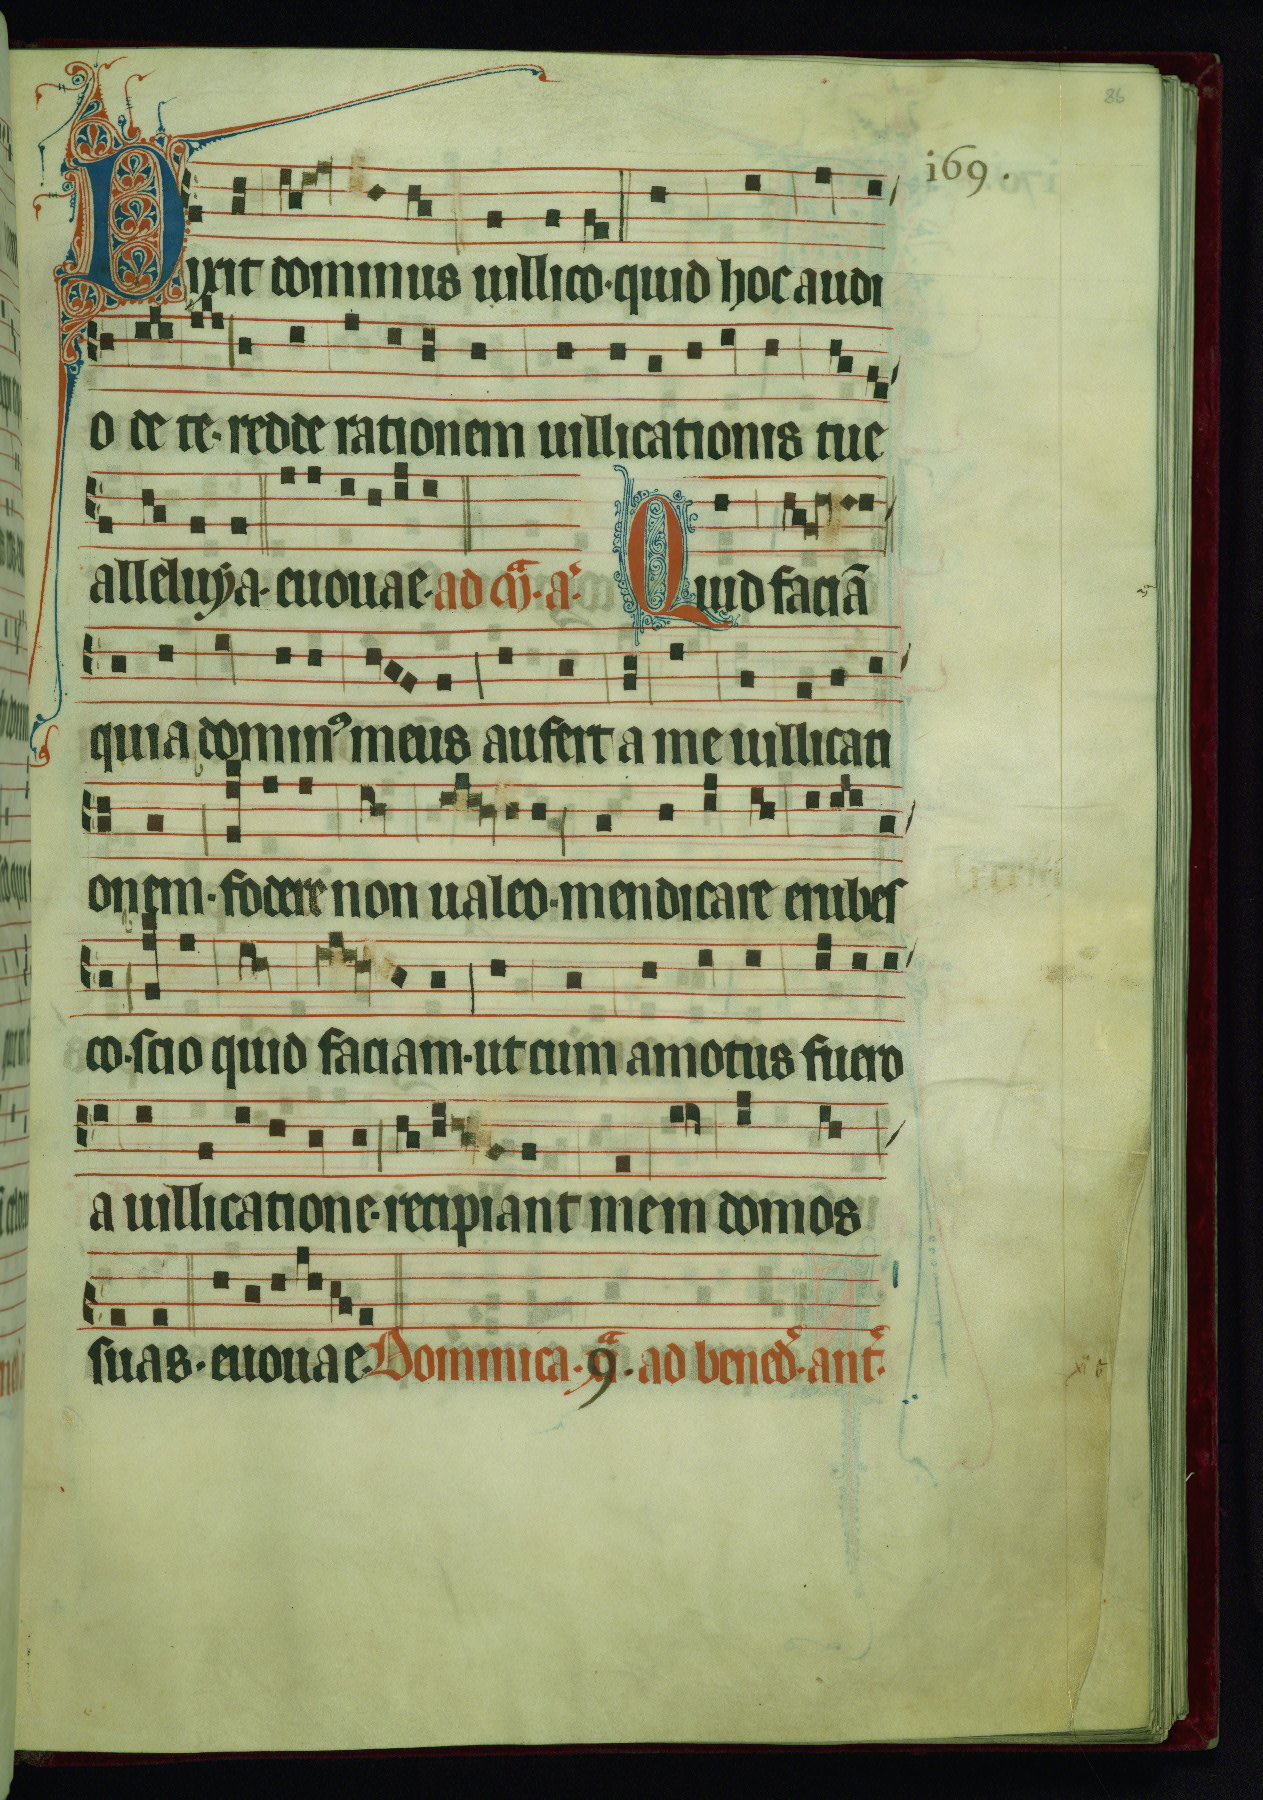 86
i69.
Dixit dominus uillico·quid hoc audi
o de te·redde rationem uillicationis tue
alleluya·euouae·ad m̄·a·Quid faciā
quia dominꝰ meus aufert a me uillicati
onem·fodere non ualeo·mendicare erubes
co·scio quid faciam·ut cum amotus fuero
a uillicatione·recipiant me in domos
suas·euouae·Dominica·9·ad bened·ant·